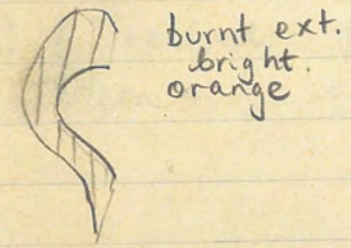 burnt ext.
bright.
orange